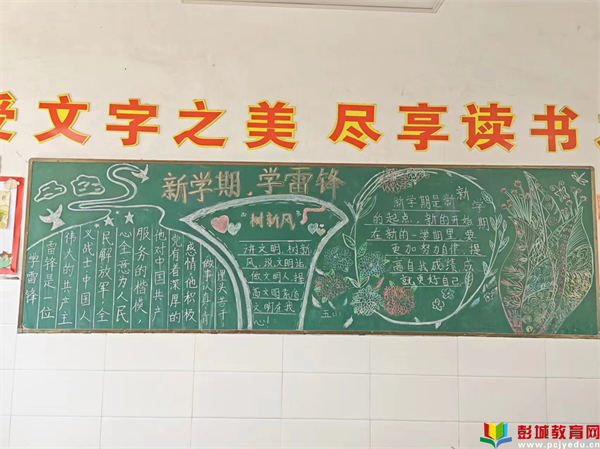 受文字之美 尽享读书
新学期.学雷锋
学雷锋
雷锋是一位
伟大的共产主
义战士中国人
民解放军全
心全意为人民
服务的楷模，
他对中国共产
党有着深厚的
感情他积极
做事认真肯
埋头苦干
“树新风”
讲文明 树新
风，说文明话
做文明人 提
高文明素质
文明在我
心！
新学期
新学期是新
的起点，新的开始
在新的一学期里要
更加努力自律，提
高自我成绩
更好自己
彭城教育网
www.pcjyedu.cn